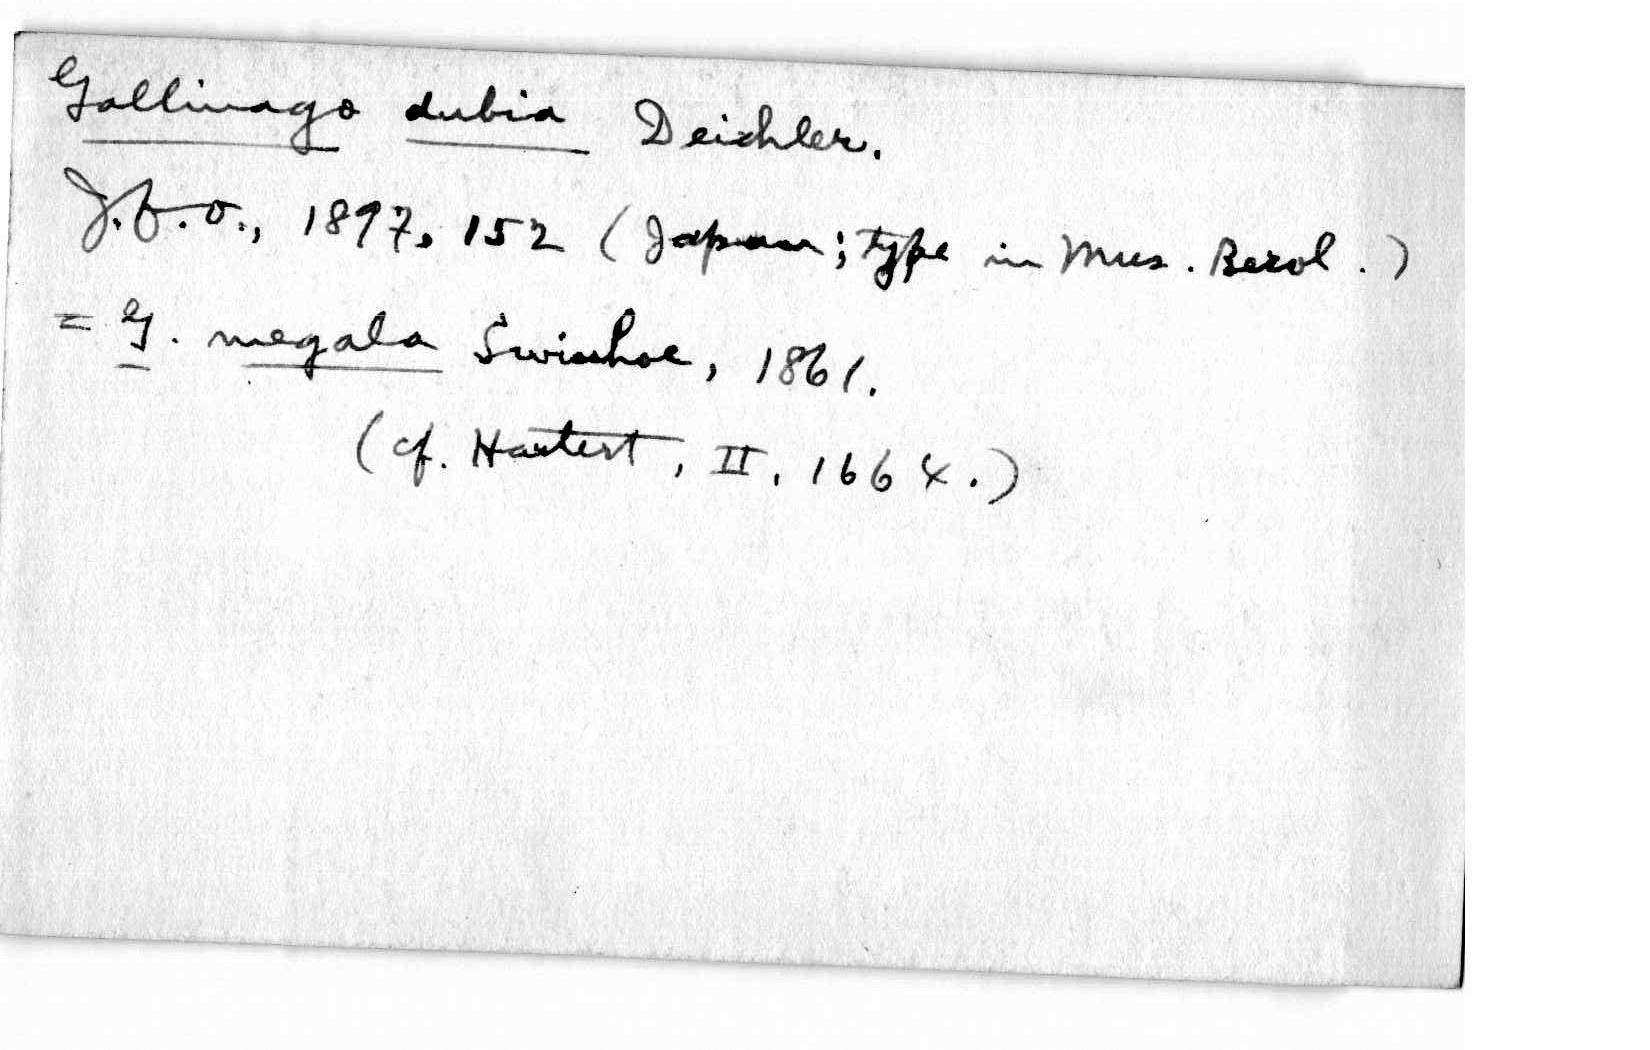 Gallinago dubia Deichler.
J.f.O., 1897, 152 (Japan; type in Mus. Berol.)
= G. megala Swinhoe, 1861.
(cf. Hartert, II, 1664.)